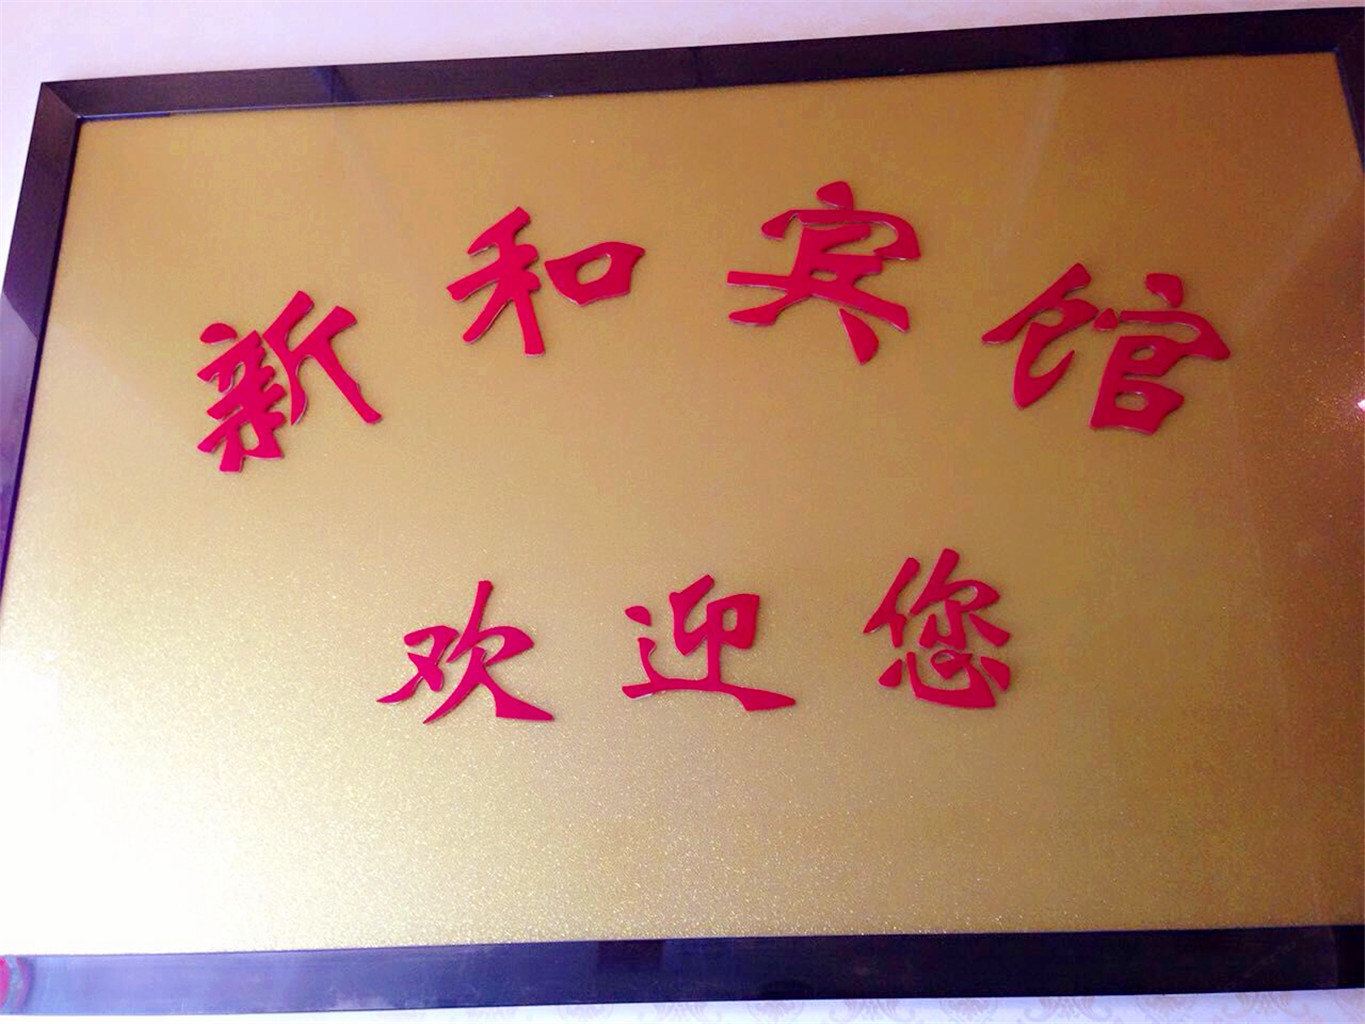 新和宾馆
欢迎您